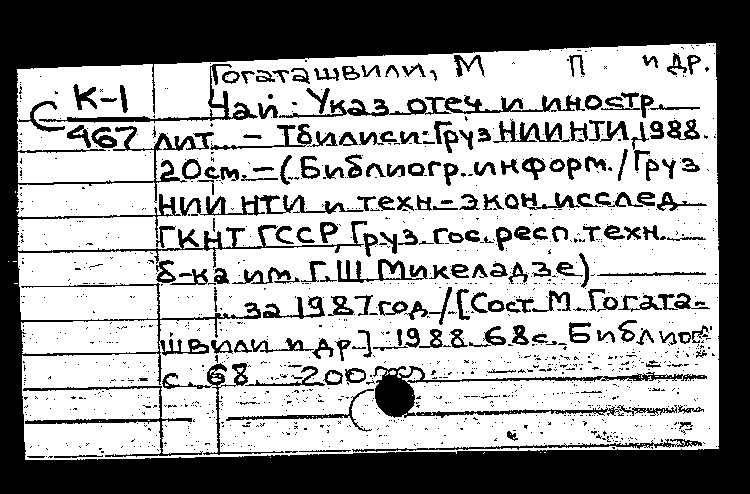 Гогаташвили, М П и др.
С К-1 Чай: Указ. отеч. и иностр.
467 лит. – Тбилиси: ГрузНИИНТИ, 1988.
20см. – (Библиогр. информ. / Груз
НИИ НТИ и техн.-экон. исслед.
ГКНТ ГССР, Груз. гос. респ. техн.
б-ка им. Г.Ш Микеладзе)
... за 1987 год / [Сост. М. Гогата-
швили и др.]. 1988. 68с. Библиог
с. 68. 200